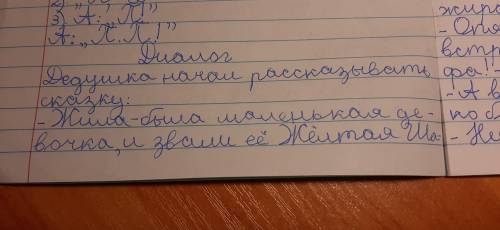 3) А: „П!"
А: „П.П.!"
Диалог
Дедушка начал рассказывать
сказку:
- Жила-была маленькая де-
вочка, и звали её Жёлтая Ша-
жира
- Опя
встр
фа!-
- А в
по
- Не